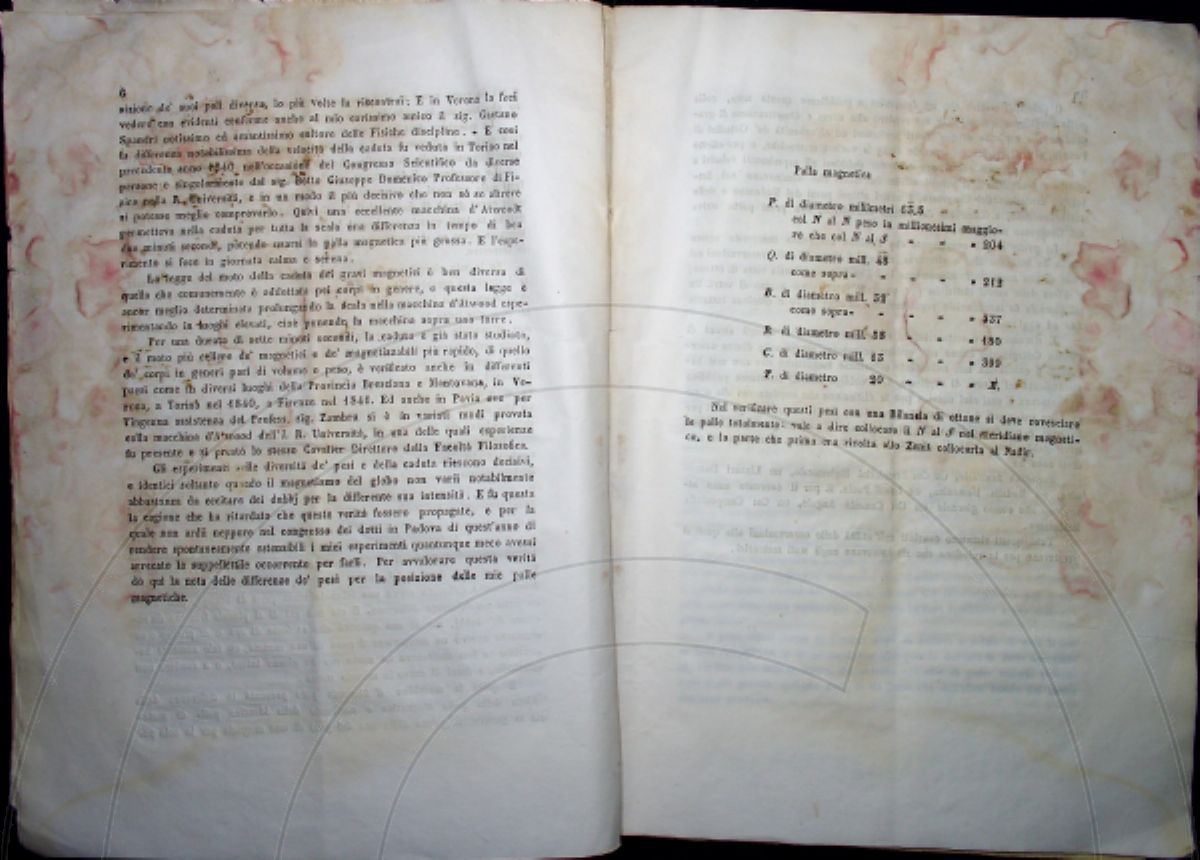 6
sizione de' suoi poli diversa, io più volte la rincontrai: E in Verona la feci
vedere con evidenti conferme anche al mio carissimo amico il sig. Gustavo
Spandri notissimo ed amantissimo cultore delle Fisiche discipline. - E così
la differenza notabilissima della velocità della caduta fu veduta in Torino nel
precedente anno 1840, nell'occasione del Congresso Scientifico da diverse
persone e singolarmente dal sig. Botto Giuseppe Domenico Professore di Fi-
sica nella R. Università, e in un modo il più decisivo che non sò se altrove
si potesse meglio comprovarlo. Quivi una eccellente macchina d'Atwood
permetteva nella caduta per tutta la scala una differenza in tempo di ben
due minuti secondi, potendo usarsi la palla magnetica più grossa. E l'espe-
rimento si fece in giornata calma e serena.
La legge del moto della caduta dei gravi magnetici è ben diversa di
quella che comunemente è addottata pei corpi in genere, e questa legge è
ancor meglio determinata prolungando la scala nella macchina d'Atwood espe-
rimentando in luoghi elevati, cioè ponendo la macchina sopra una torre.
Per una durata di sette minuti secondi, la caduta è già stata studiata,
e il moto più celere de' magnetici e de' magnetizzabili più rapido, di quello
de' corpi in generi pari di volume e peso, è verificato anche in differenti
paesi come in diversi luoghi della Provincia Bresciana e Mantovana, in Ve-
rona, a Torino nel 1840, a Firenze nel 1841. Ed anche in Pavia ove per
l'ingenua assistenza del Profess. sig. Zambra si è in variati modi provata
colla macchina d'Atwood dell'I. R. Università, in una delle quali esperienze
fu presente e si prestò lo stesso Cavalier Direttore della Facoltà Filosofica.
Gli esperimenti sulle diversità de' pesi e della caduta riescono decisivi,
e identici soltanto quando il magnetismo del globo non varii notabilmente
abbastanza da eccitare dei dubbj per la differente sua intensità. E fu questa
la cagione che ha ritardato che queste verità fossero propagate, e per la
quale non ardii neppure nel congresso dei dotti in Padova di quest'anno di
rendere spontaneamente ostensibili i miei esperimenti quantunque meco avessi
arrecato la suppellettile occorrente per farli. Per avvalorare questa verità
dò qui la nota delle differenze de' pesi per la posizione delle mie palle
magnetiche.
Palla magnetica
P. di diametro millimetri 63,5
col N al N peso in millionesimi maggio-
re che col N al S " " " 204
Q. di diametro mill. 48
come sopra- " " " " 212
B. di diametro mill. 52
come sopra- " " " " 337
R. di diametro mill. 38 " " " 180
C. di diametro mill. 43 " " " 399
T. di diametro 20 " " "
Nel verificare questi pesi con una Bilancia di ottone si deve rovesciare
le palle totalmente: vale a dire collocare il N al S nel meridiano magneti-
co, e la parte che prima era rivolta allo Zenit collocarla al Nadir.